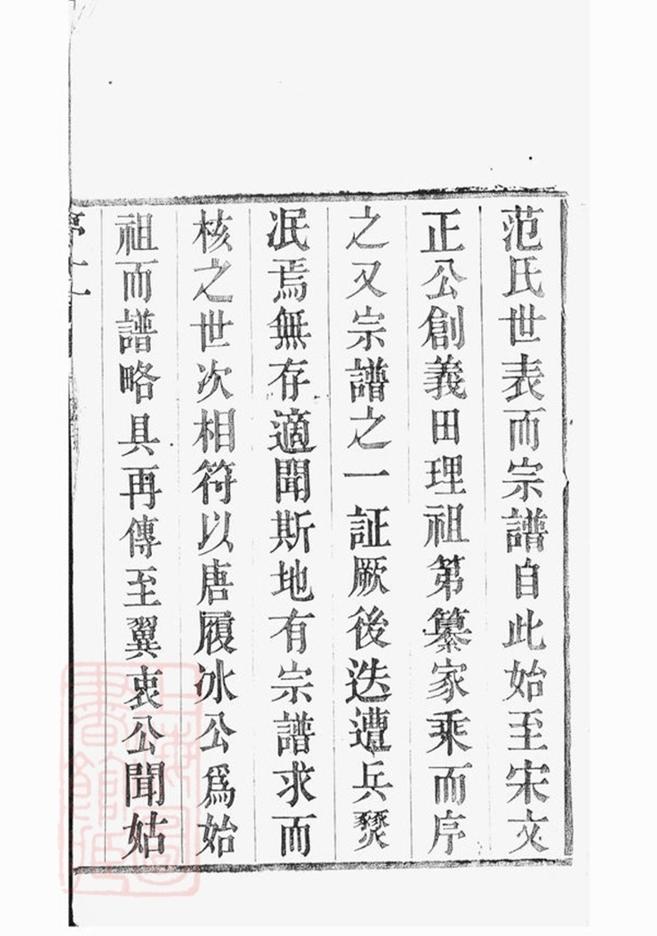 范氏世表而宗譜自此始至宋文
正公創義田理祖第纂家乘而序
之又宗譜之一証厥後迭遭兵燹
泯焉無存適聞斯地有宗譜求而
核之世次相符以唐履冰公爲始
祖而譜略具再傳至翼衷公聞姑